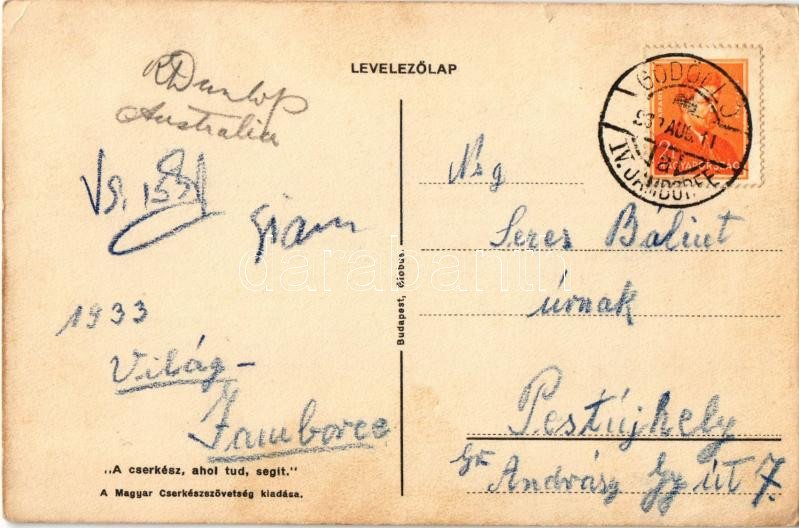 LEVELEZŐLAP
R Dunlop
Australia
1933
Világ-
Jamboree
„A cserkész, ahol tud, segit."
A Magyar Cserkészszövetség kiadása.
Budapest, Globus.
GÖDÖLLŐ
AUG. 11
IV. JAMBOREE
MAGYARORSZÁG
Nsg
Seres Bálint
úrnak
Pestújhely
Gr
Andrássy Gy út 7.
darabanth